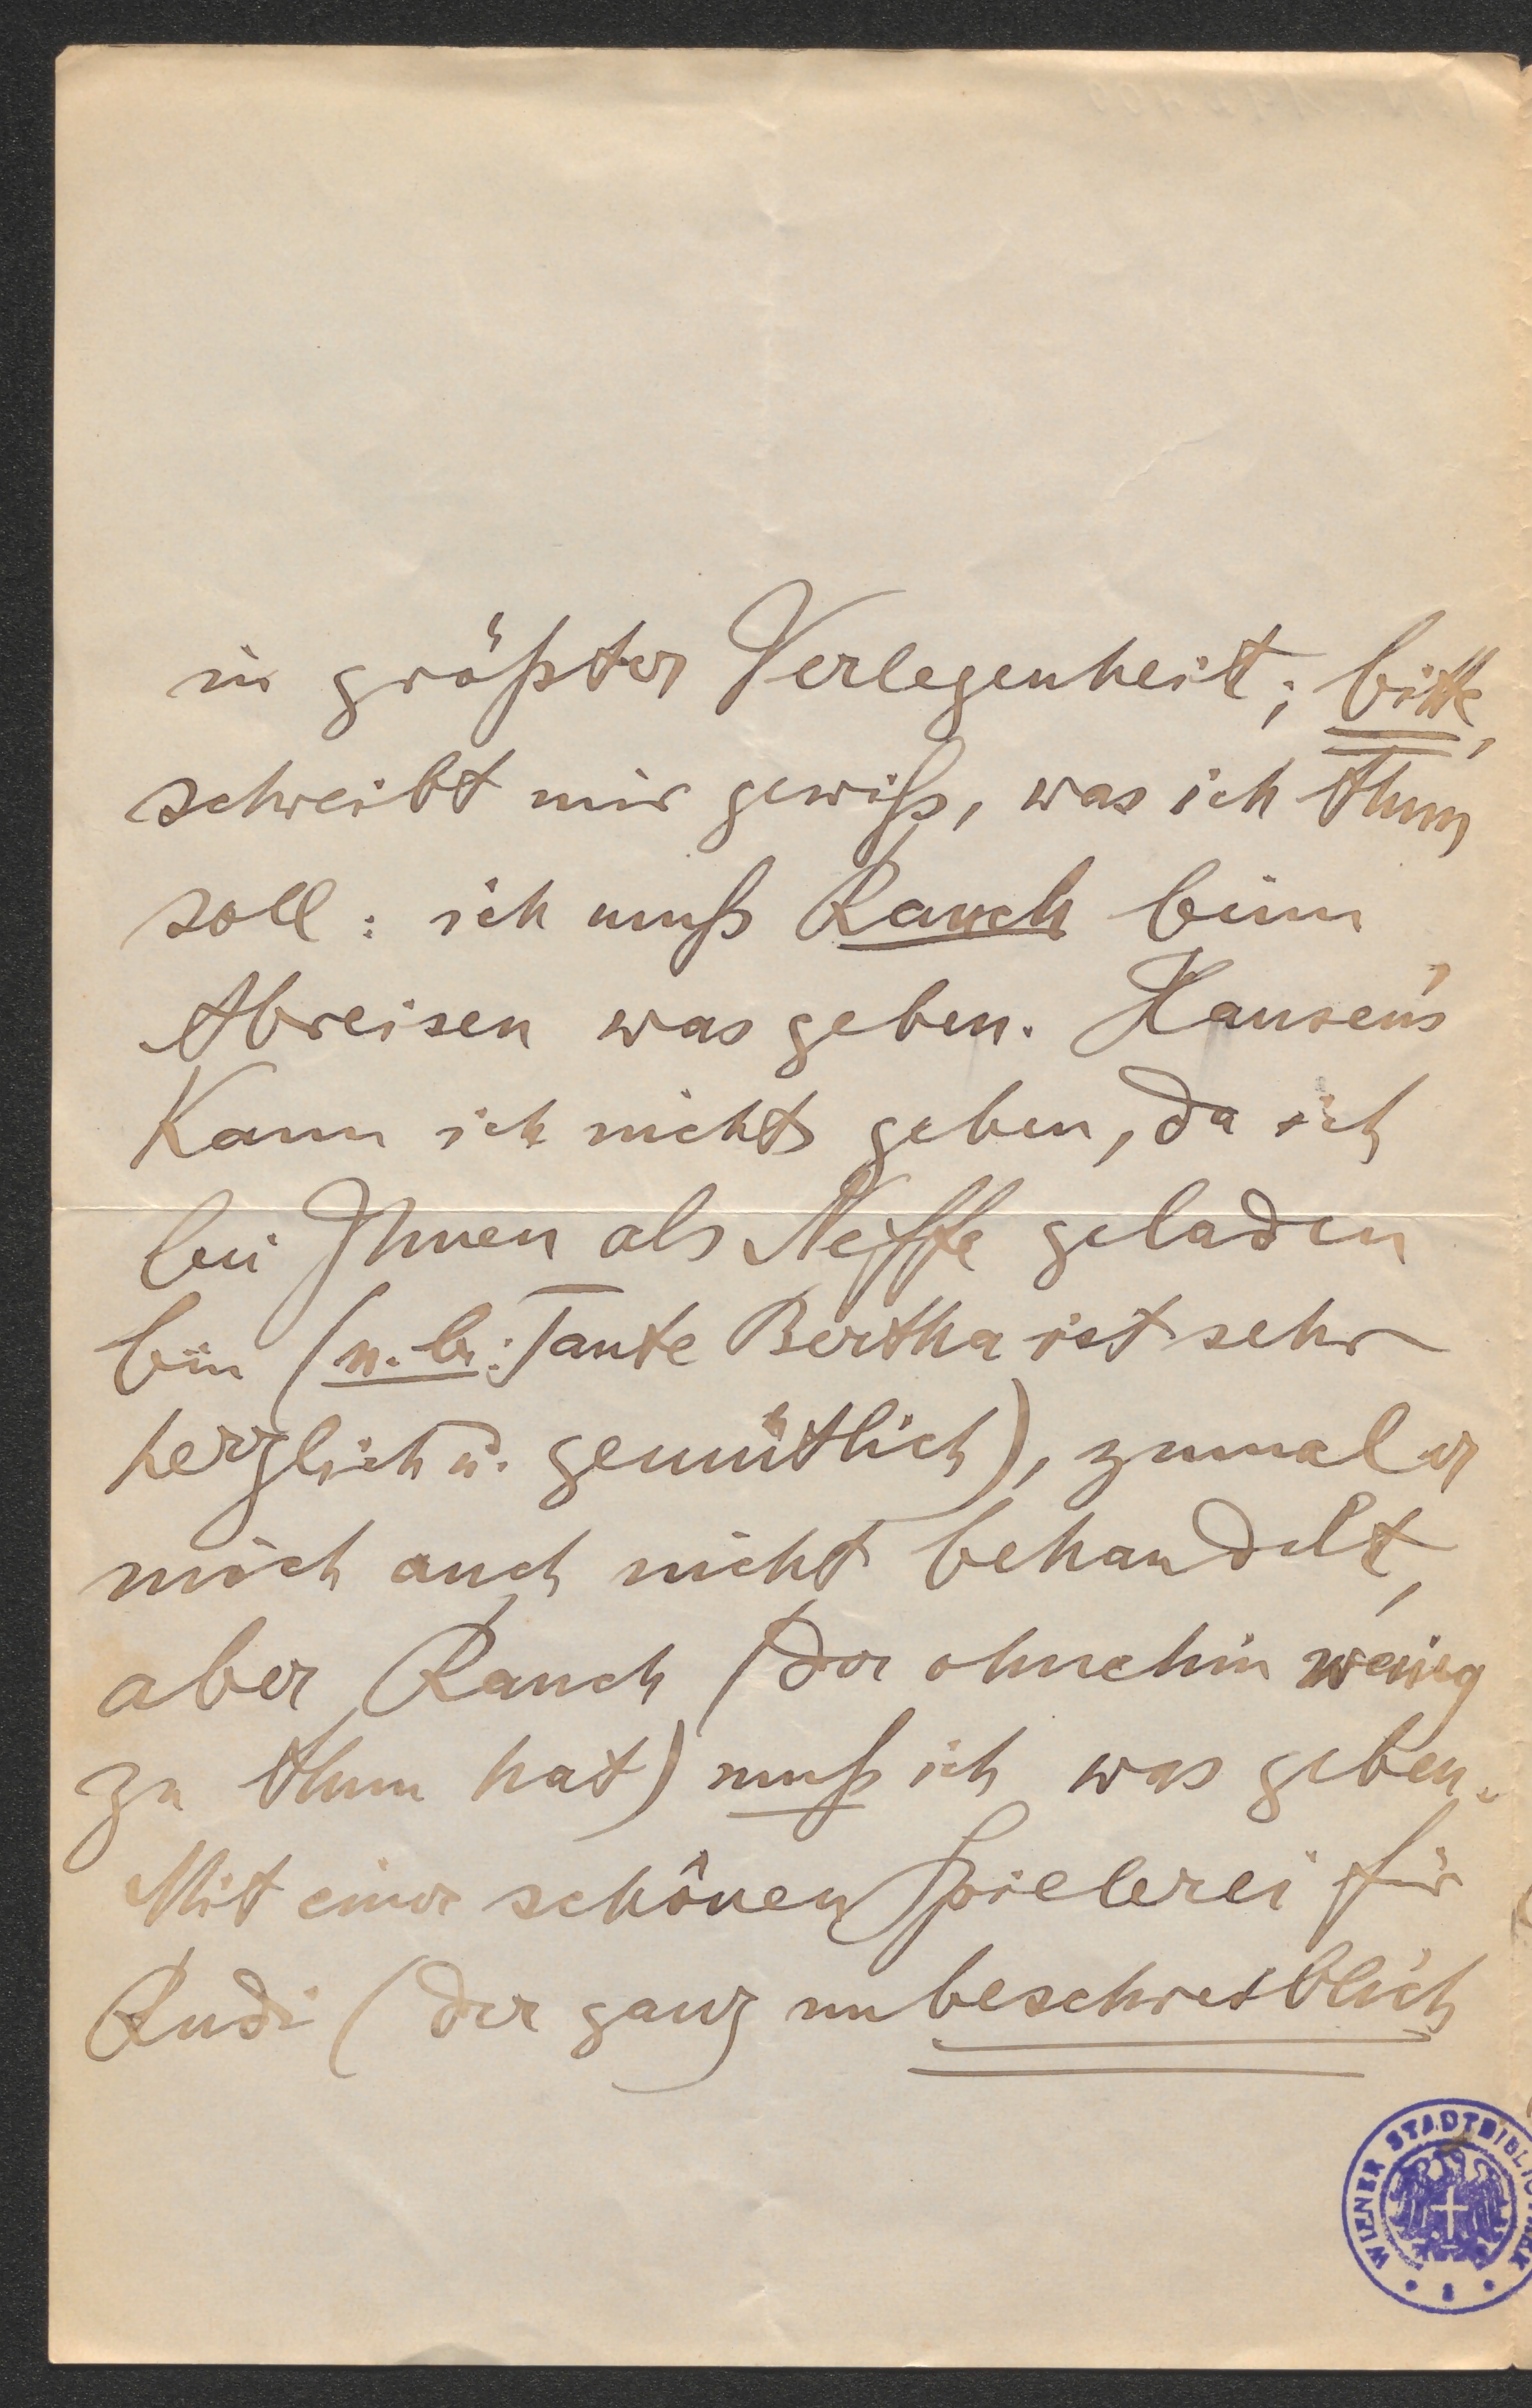 in größter Verlegenheit; bitte,
schreibt mir gewiß, was ich thun
soll: ich muß Rauch beim
Abreisen was geben. Hansen's
Kann ich nichts geben, da ich
bei Ihnen als Neffe geladen
bin (n.b.: Tante Bertha ist sehr
herzlich u. gemütlich), zumal er
mich auch nicht behandelt,
aber Rauch (der ohnehin wenig
zu thun hat) muß ich was geben.
Mit einer schönen Spielerei für
Rudi (der ganz unbeschreiblich
WIENER STADTBIBLIOTHEK